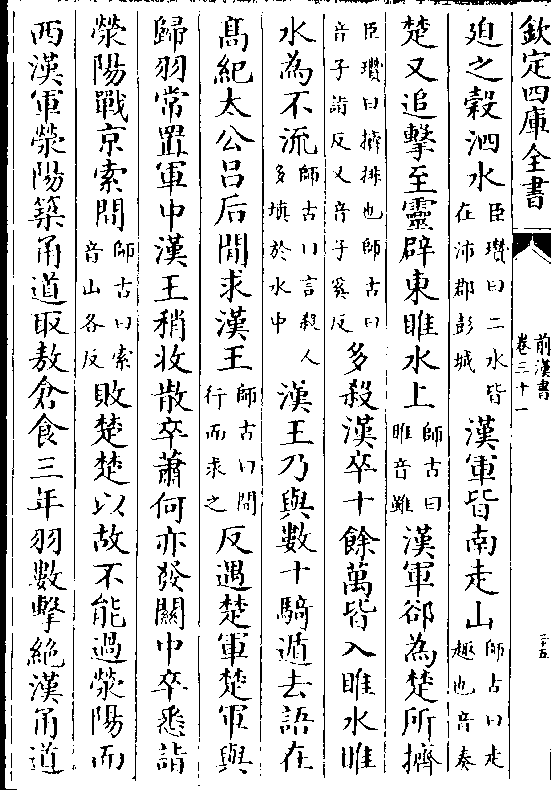 欽定四庫全書
前漢書
卷三十一
二十五
迫之穀泗水臣瓚曰二水皆在沛郡彭城漢軍皆南走山師古曰走趣也音奏
楚又追擊至靈辟東睢水上師古曰睢音雖漢軍郤為楚所擠
臣瓚曰擠排也師古曰音子詣反又音子奚反多殺漢卒十餘萬皆入睢水睢
水為不流師古曰言殺人多填於水中漢王乃與數十騎遁去語在
髙紀太公吕后間求漢王師古曰間行而求之反遇楚軍楚軍與
歸羽常置軍中漢王稍收散卒蕭何亦發關中卒悉詣
滎陽戰京索間師古曰索音山各反敗楚楚以故不能過滎陽而
西漢軍滎陽築甬道取敖倉食三年羽數擊絶漢甬道